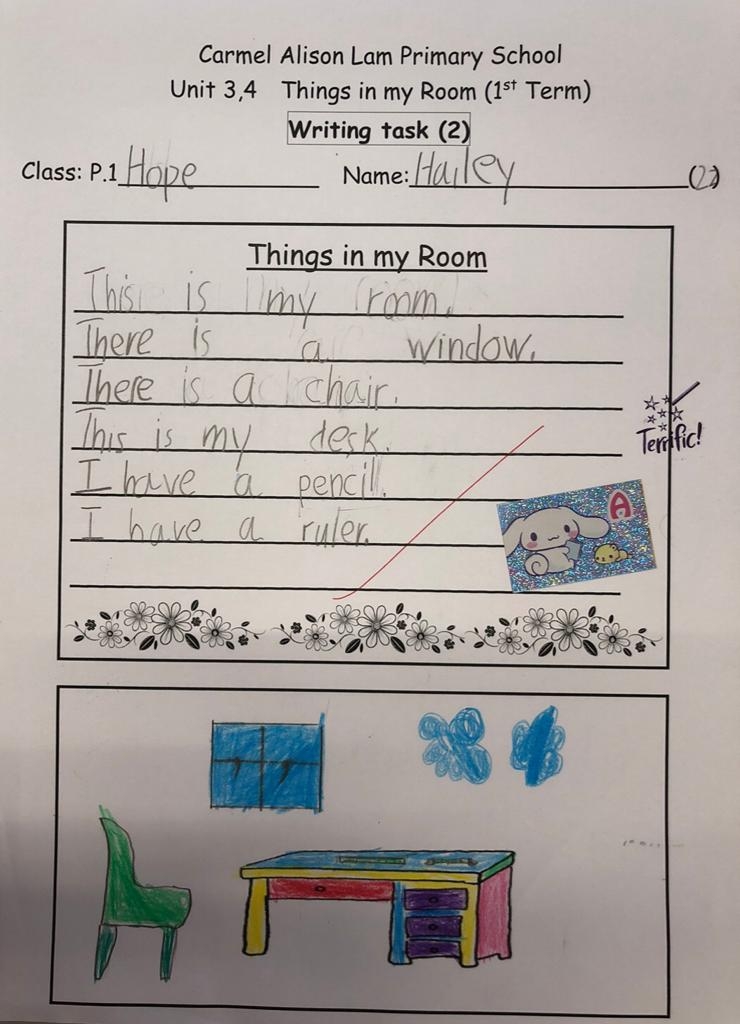 Carmel Alison Lam Primary School
Unit 3,4 Things in my Room (1st Term)
Writing task (2)
Class: P.1 Hope Name: Hailey (22)
Things in my Room
This is my room.
There is a window.
There is a chair.
This is my desk.
I have a pencil.
I have a ruler.
Terrific!
A